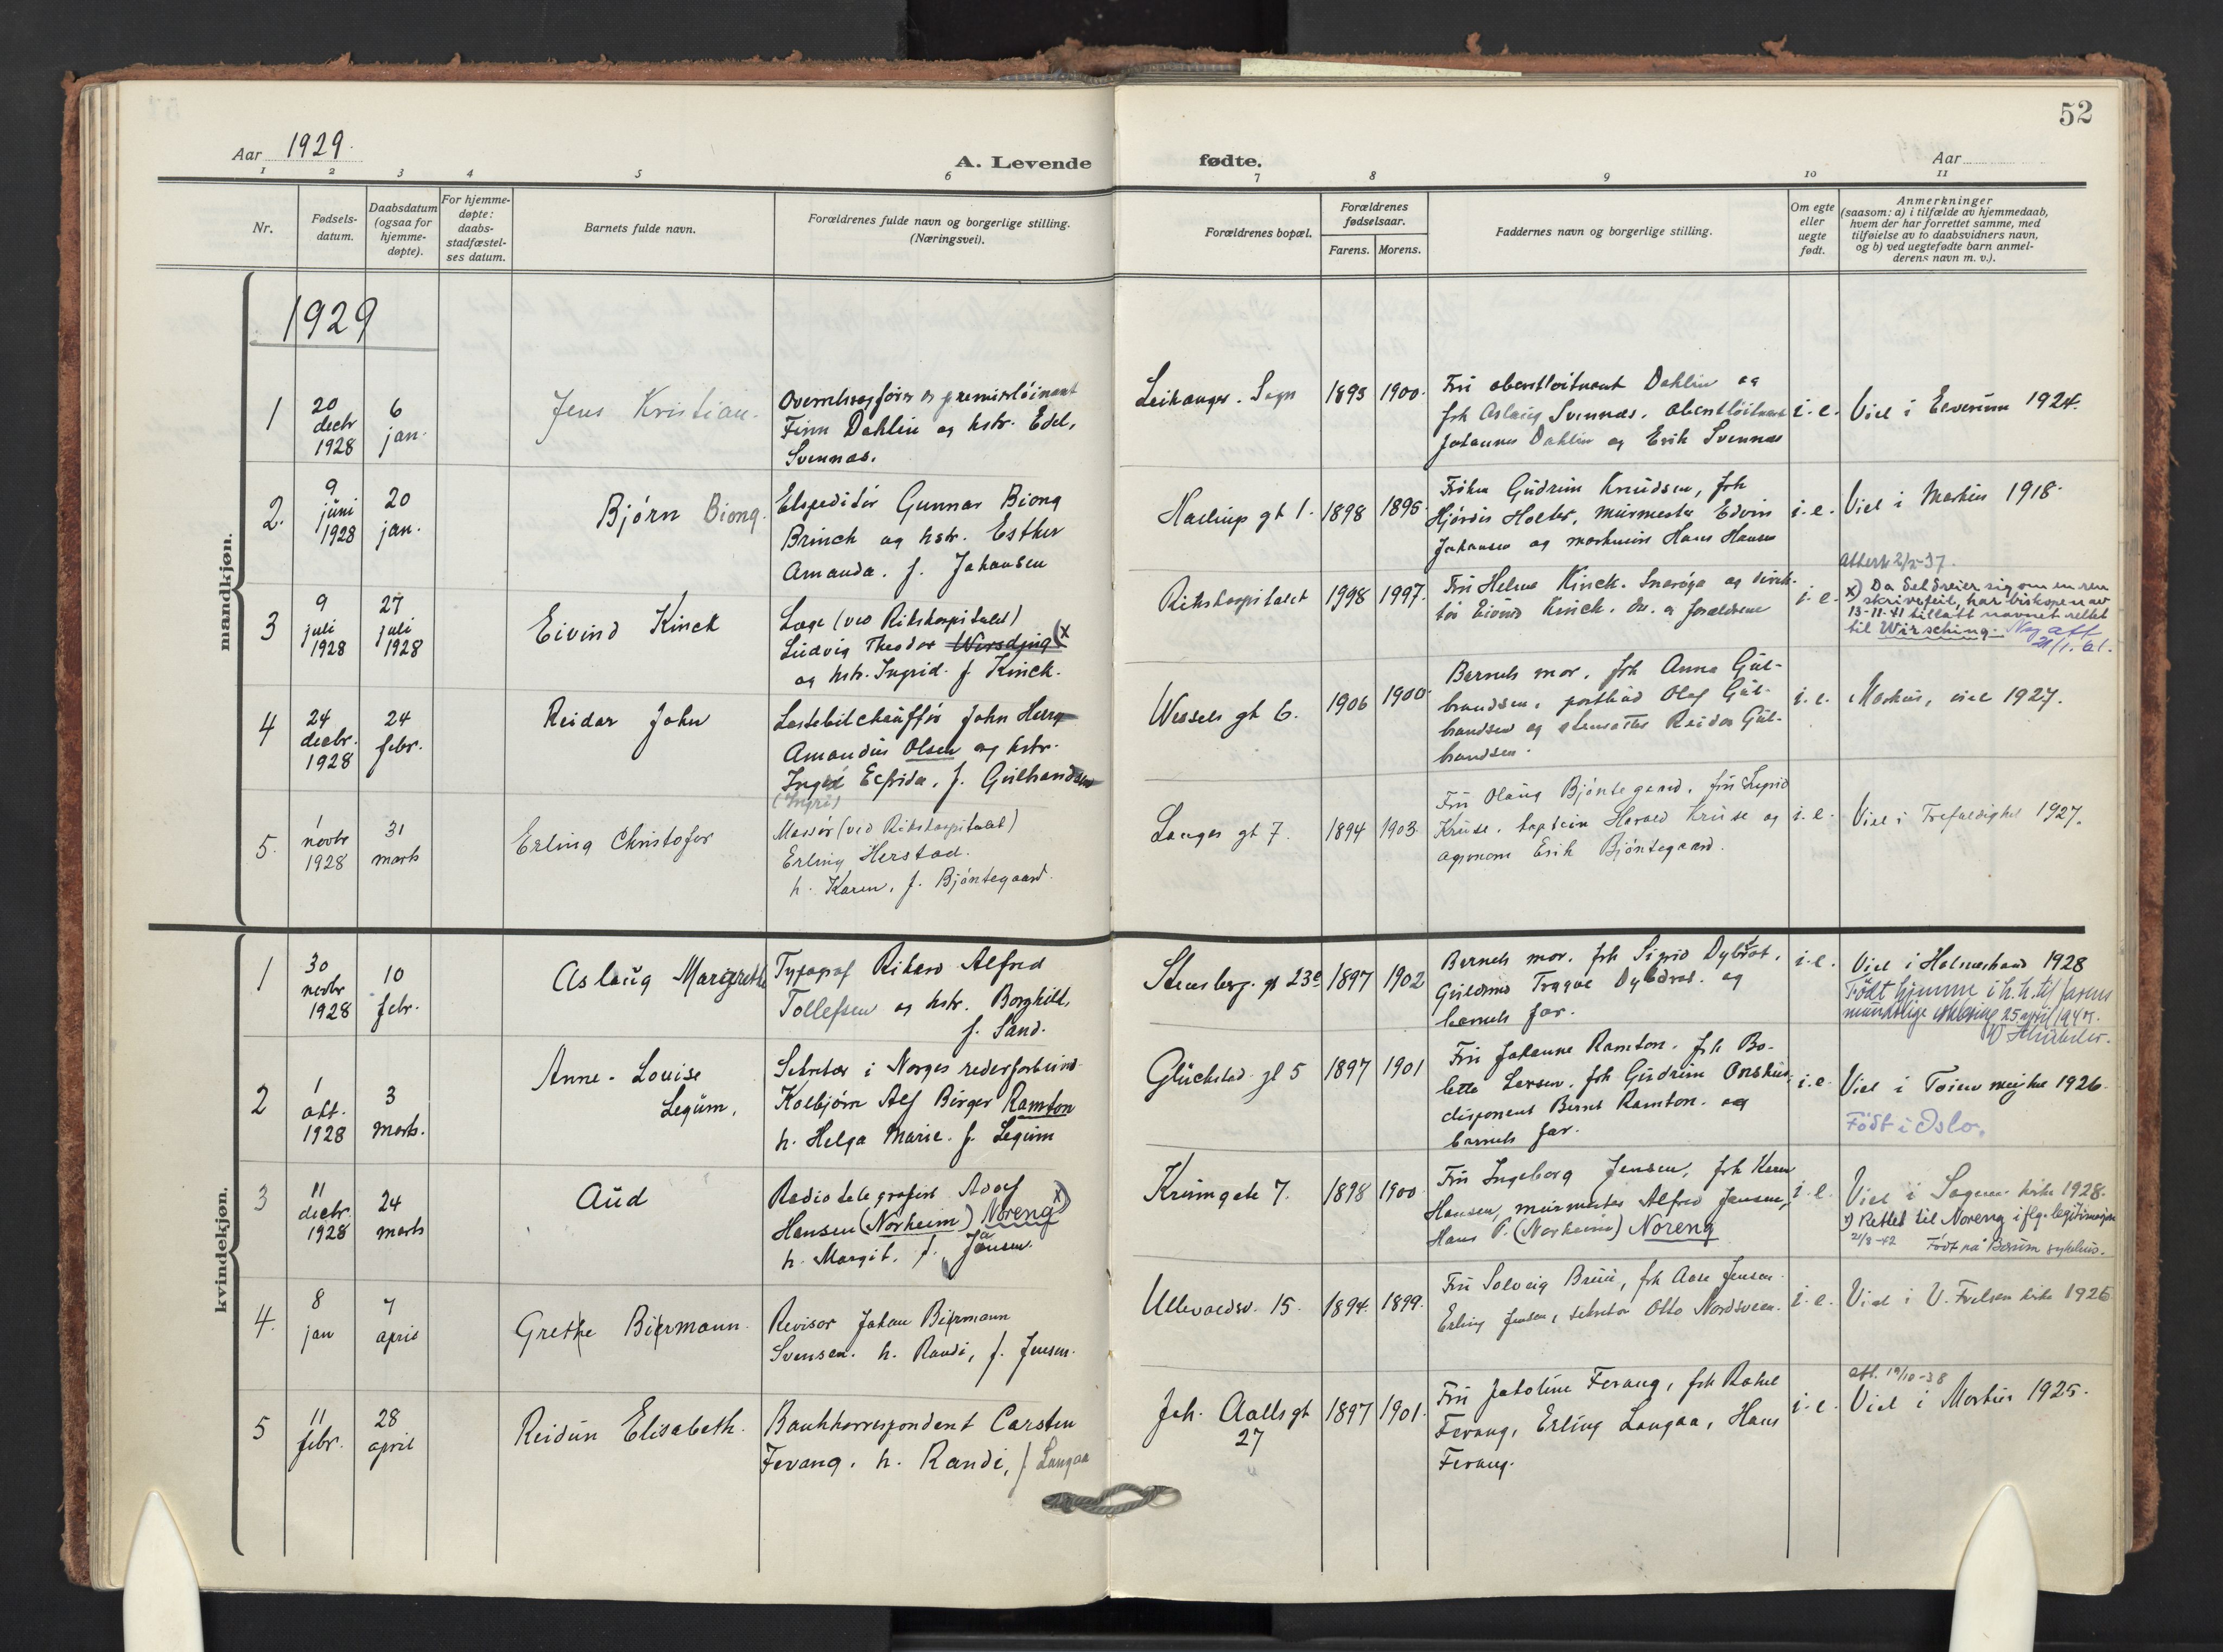 52
Aar 1929.
A. Levende
fødte.
Aar
1 2 3 4 5 6
7 8 9 10 11
Nr.
Fødsels-
datum.
Daabsdatum
(ogsaa for
hjemme-
døpte).
For hjemme-
døpte:
daabs-
stadfæstel-
ses datum.
Barnets fulde navn.
Forældrenes fulde navn og borgerlige stilling.
(Næringsvei).
Forældrenes bopæl.
Forældrenes
fødselsaar.
Farens. Morens.
Faddernes navn og borgerlige stilling.
Om egte
eller
uegte
født.
Anmerkninger
(saasom: a) i tilfælde av hjemmedaab,
hvem der har forrettet samme, med
tilføielse av to daabsvidners navn,
og b) ved uegtefødte barn anmel-
derens navn m. v.).
mandkjøn.
1929
1
20
decbr
1928
6
jan.
Jens Kristian.
og premierløinant
Finn Dahlin og hstr. Edel,
Svennæs.
Leikanger. Sogn
1893
1900.
Fru oberstløitnant Dahlin og
frk Aslaug Svennæs. oberstløitnant
Johannes Dahlin og Erik Svennæs
i. e.
Viet i Elverum 1924.
2.
9
juni
1928
20
jan.
Bjørn Biong.
Ekspeditør Gunnar Biong
Brinch og hstr. Esther
Amanda. f. Johansen
gt 1.
1898
1895
Frøken Gudrun Knudsen, frk
Hjørdis Holter, murmester Edvin
Johansen og maskinist Hans Hansen
i. e.
Viet i Markus 1918.
3
9
juli
1928
27
juli
1928
Eivind Kinck
Læge (ved Rikshospitalet)
Ludvig Theodor Wirsching (x
og hstr. Ingrid. f Kinck.
Rikshospitalet
1998
1997.
Fru Helma Kinck. Snarøya og direk-
tør Eivind Kinck. do. og forældrene
i. e.
Attest 2/2-37.
x) Da det dreier sig om en ren
skrivefeil, har biskopen av
13-11-41 tillatt navnet rettet
til Wirsching. Ny att
21/1. 61.
4
24
decbr.
1928
24
febr.
Reidar John
Lastebilchauffør John Henry
Amandus Olsen og hstr.
Inget Elfrida, f. Gulbrandsen
(Ingrid)
Wessels gt 6.
1906
1900.
Barnets mor, frk Anna Gul-
brandsen, postbud Olaf Gul-
brandsen og Reidar Gul-
brandsen.
i. e.
Markus, viet 1927.
5.
1
novbr
1928
31
marts
Erling Christofer
Massør (ved Rikshospitalet)
Erling Herstad.
h. Karen, f. Bjøntegaard.
Langes gt 7.
1894
1903.
Fru Olaug Bjøntegaard, fru Ingrid
Kruse, kaptein Harald Kruse og
agronom Erik Bjøntegaard.
i. e.
Viet i Trefoldighet 1927.
kvindekjøn.
1
30
novbr
1928
10
febr.
Aslaug Margrethe
Typograf Rikard Alfred
Tollefsen og hstr. Borghild,
f. Sand.
Stensberg. gt 23c
1897
1902
Barnets mor. frk Sigrid Dybdrot,
Guldrand Trygve Dybdrot. og
barnets far.
i. e.
Viet i Holmestrand 1928
Født hjemme i h. h. til farens
mundtlige erklæring 25 april 1947.
2
1
okt.
1928
3
marts.
Anne-Louise
Legum,
Sekretær i Norges rederforbund
Kolbjørn Alf Birger Ramton
h. Helga Marie. f. Legum
Glückstad gt 5
1897
1901
Fru Johanne Ramton. frk Bo-
lette Larsen. frk Gudrun
disponent Bernt Ramton. og
barnets far.
i. e.
Viet i Tøien 1926.
Født i Oslo.
3
11
decbr.
1928
24
marts
Aud
Radiotelegrafist Adolf
Hansen (Norheim) Noreng x)
h. Margit. f. Jansen.
Krumgate 7.
1898
1900
Fru Ingeborg Jensen, frk Karen
Hansen, murmester Alfred Jansen,
Hans P. (Norheim) Noreng
i. e.
Viet i Sagene kirke 1928.
x) Rettet til Noreng iflg. legitimasjon
21/8-42 Født på Bærum sykehus.
4.
8
jan
7
april
Grethe Biermann.
Revisor Johan Biermann
Svensen. h. Randi, f. Jensen.
Ullevoldsv. 15.
1894.
1899.
Fru Solveig Bruu, frk Aase Jensen.
Erling Jensen, sekretær Otto Nordsveen.
i. e.
Viet i V. Frelsers kirke 1926
5
11
febr.
28
april
Reidun Elisabeth.
Bankkorrespondent Carsten
Fevang. h. Randi, f Langaa
Joh. Aalls gt
27
1897
1901.
Fru Jakoline Fevang, frk Rakel
Fevang, Erling Langaa, Hans
Fevang.
i. e.
att. 19/10-38
Viet i Markus 1925.